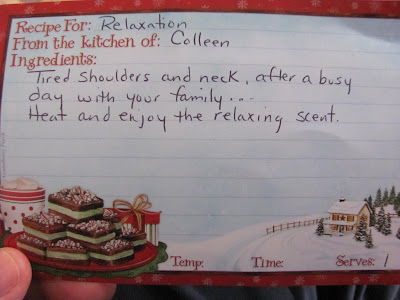 Recipe For: Relaxation
From the kitchen of: Colleen
Ingredients:
Tired shoulders and neck, after a busy
day with your family...
Heat and enjoy the relaxing scent.
Temp: Time: Serves: 1